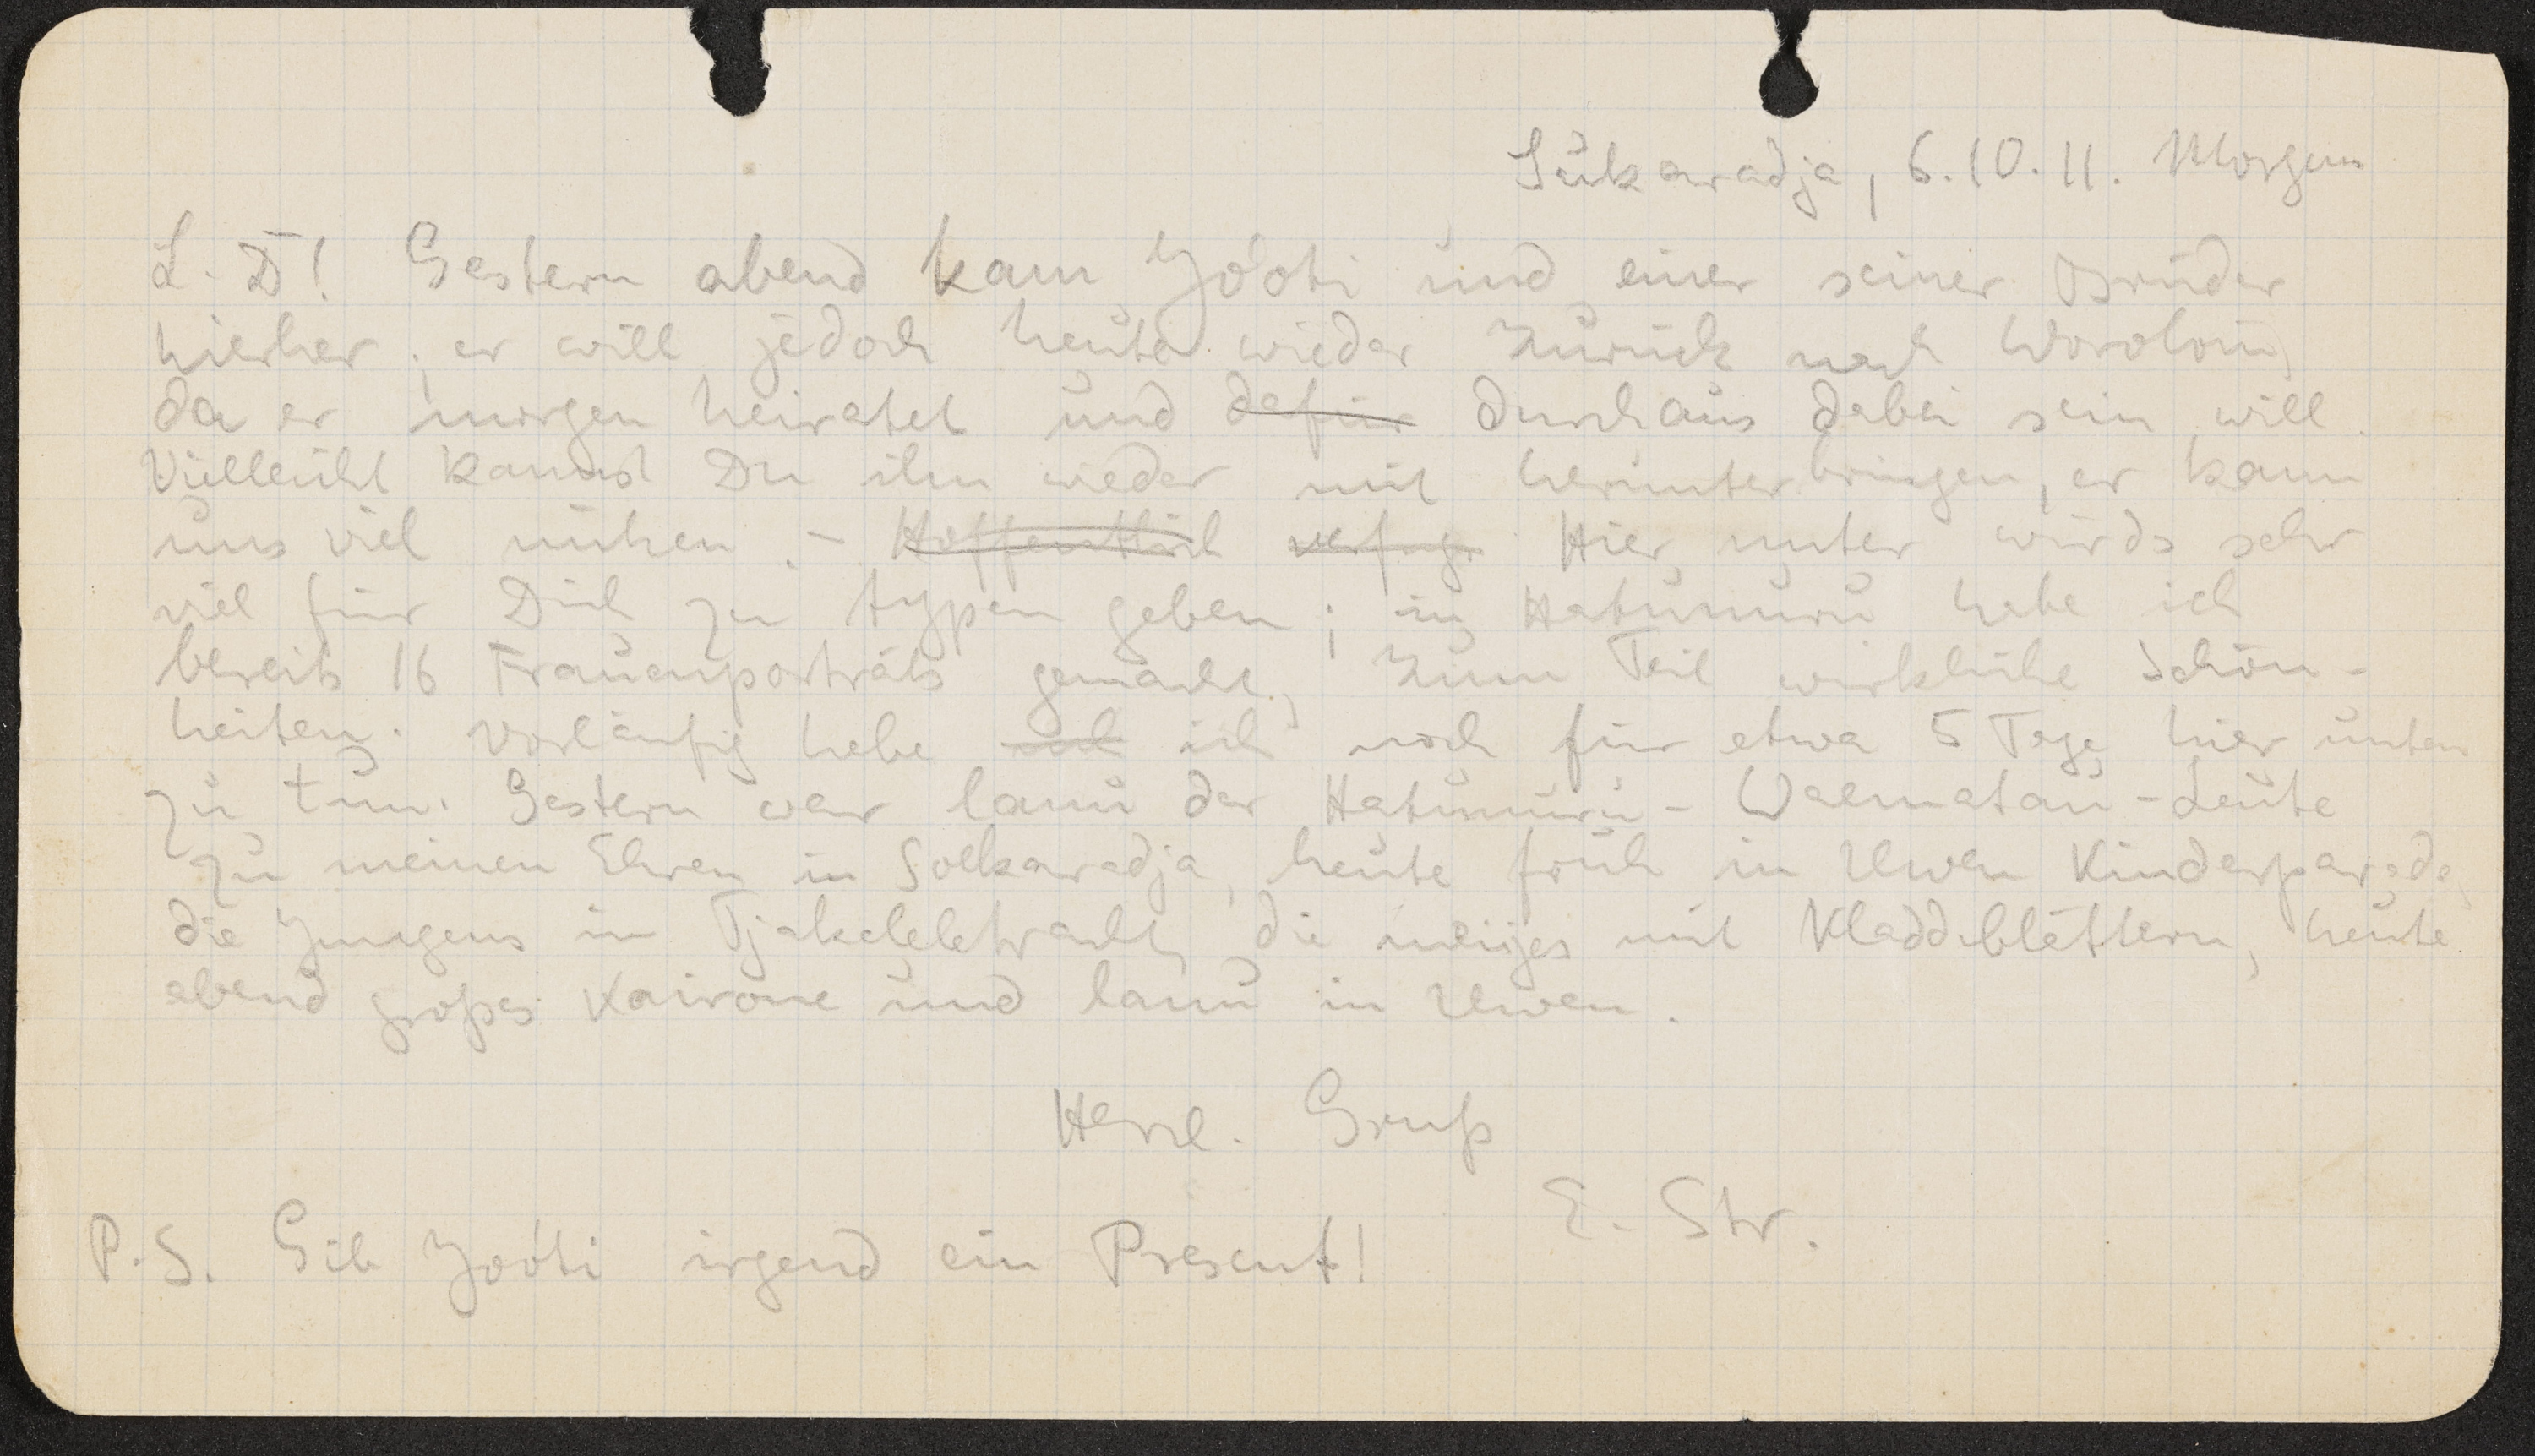 Sukaradja, 6.10.11. Morgens
L. D! Gestern abend kam Yoöti und einer seiner Brüder
hierher; er will jedoch heute wieder zurück nach Woroloin,
da er morgen heiratet und dafür durchaus dabei sein will.
Vielleicht kannst Du ihn wieder mit herunterbringen, er kann
uns viel nützen. – Hoffentlich verfug Hier unter wirds sehr
viel für Dich zu typen geben; in Hatunuru habe ich
bereits 16 Frauenporträts gemacht, zum Teil wirkliche Schön-
heiten. Vorläufig habe ich noch für etwa 5 Tage hier unten
zu tun. Gestern war lanu der Hatunuru-Waematau-Leute
zu meinen Ehren in Soekaradja, heute früh in Uwen Kinderparade,
die Jungens in Tjakeleletracht, die meisjes mit Kladdeblättern, heute
abend großes Kairone und lanu in Uwen.
Herzl. Gruß
E. Str.
P.S. Gib Yoöti irgend ein Present!